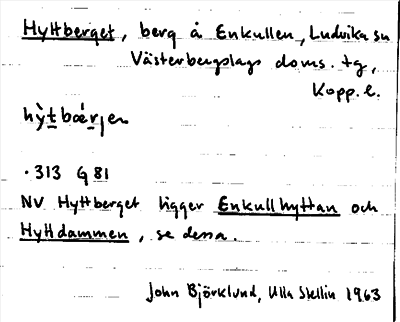 Hyttberget, berg å Enkullen, Ludvika sn
Västerbergslags doms. tg,
Kopp. l.
hỳt̲bær̲jen
·313 G 81
NV Hyttberget ligger Enkullhyttan och
Hyttdammen, se dessa.
John Björklund, Ulla Stellin 1963